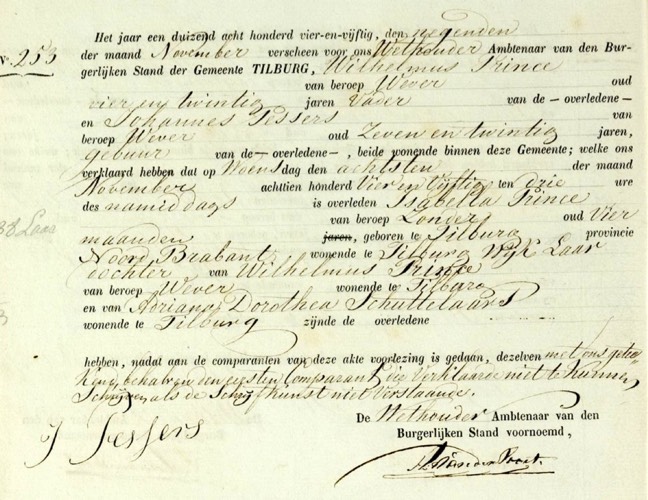 Het jaar een duizend acht honderd vier-en-vijftig, den negenden
No. 253 der maand November verscheen voor ons Wethouder Ambtenaar van den Bur-
gerlijken Stand der Gemeente TILBURG, Wilhelmus Prince
van beroep Wever oud
vier en twintig jaren Vader van de — overledene —
en Johannes Tessers van
beroep Wever oud Zeven en twintig jaren,
gebuur van de — overledene —, beide wonende binnen deze Gemeente; welke ons
verklaard hebben dat op Woensdag den achtsten der maand
November achttien honderd Vier en Vijftig ten drie ure
des namiddags is overleden Isabella Prince
van beroep Zonder oud Vier
maanden jaren, geboren te Tilburg provincie
Noord Brabant wonende te Tilburg Wijk Laar
dochter van Wilhelmus Prince
van beroep Wever wonende te Tilburg
en van Adriana Dorothea Schuttelaars
wonende te Tilburg zijnde de overledene
hebben, nadat aan de comparanten van deze akte voorlezing is gedaan, dezelven met ons geteekend
behalven een eersten Comparant die Verklaarde niet te kunnen
Schrijven als de Schrijfkunst niet Verstaande.
De Wethouder Ambtenaar van den
Burgerlijken Stand voornoemd,
J Tessers